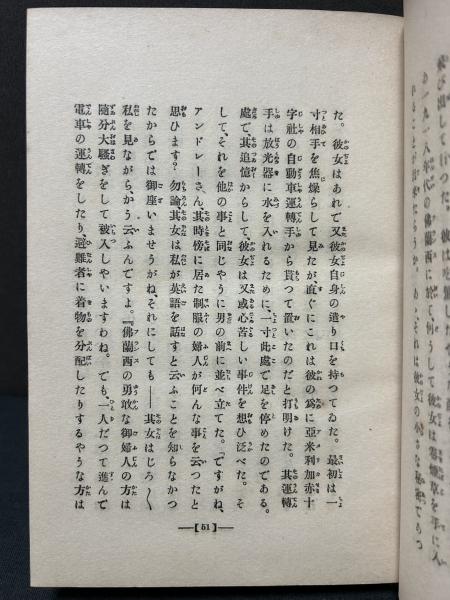 た。彼女はあれで又彼女自身の遣り口を持つてゐた。最初は一
寸相手を焦燥らして見たが直ぐにこれは彼の爲に亞米利加赤十
字社の自動車運轉手から貰つて置いたのだと打明けた。其運轉
手は放光器に水を入れるために、一寸此處で足を停めたのである。
處で、其追憶からして、彼女は又或心苦しい事件を想ひ泛べた。そ
して、それを他の事と同じやうに男の前に並べ立てた。「ですがね、
アンドレーさん、其時傍に居た制服の婦人が何んな事を云つたと
思ひます？勿論其女は私が英語を話すと云ふことを知らなかつ
たからでは御座いませうがね、それにしても――其女はじろ〱
私を見ながら、かう云ふんですよ。『佛蘭西の勇敢な御婦人の方は
隨分大騷ぎをして被入しやいますわね。でも、一人だつて進んで
電車の運轉をしたり、避難者に着物を分配したりするやうな方は
【51】